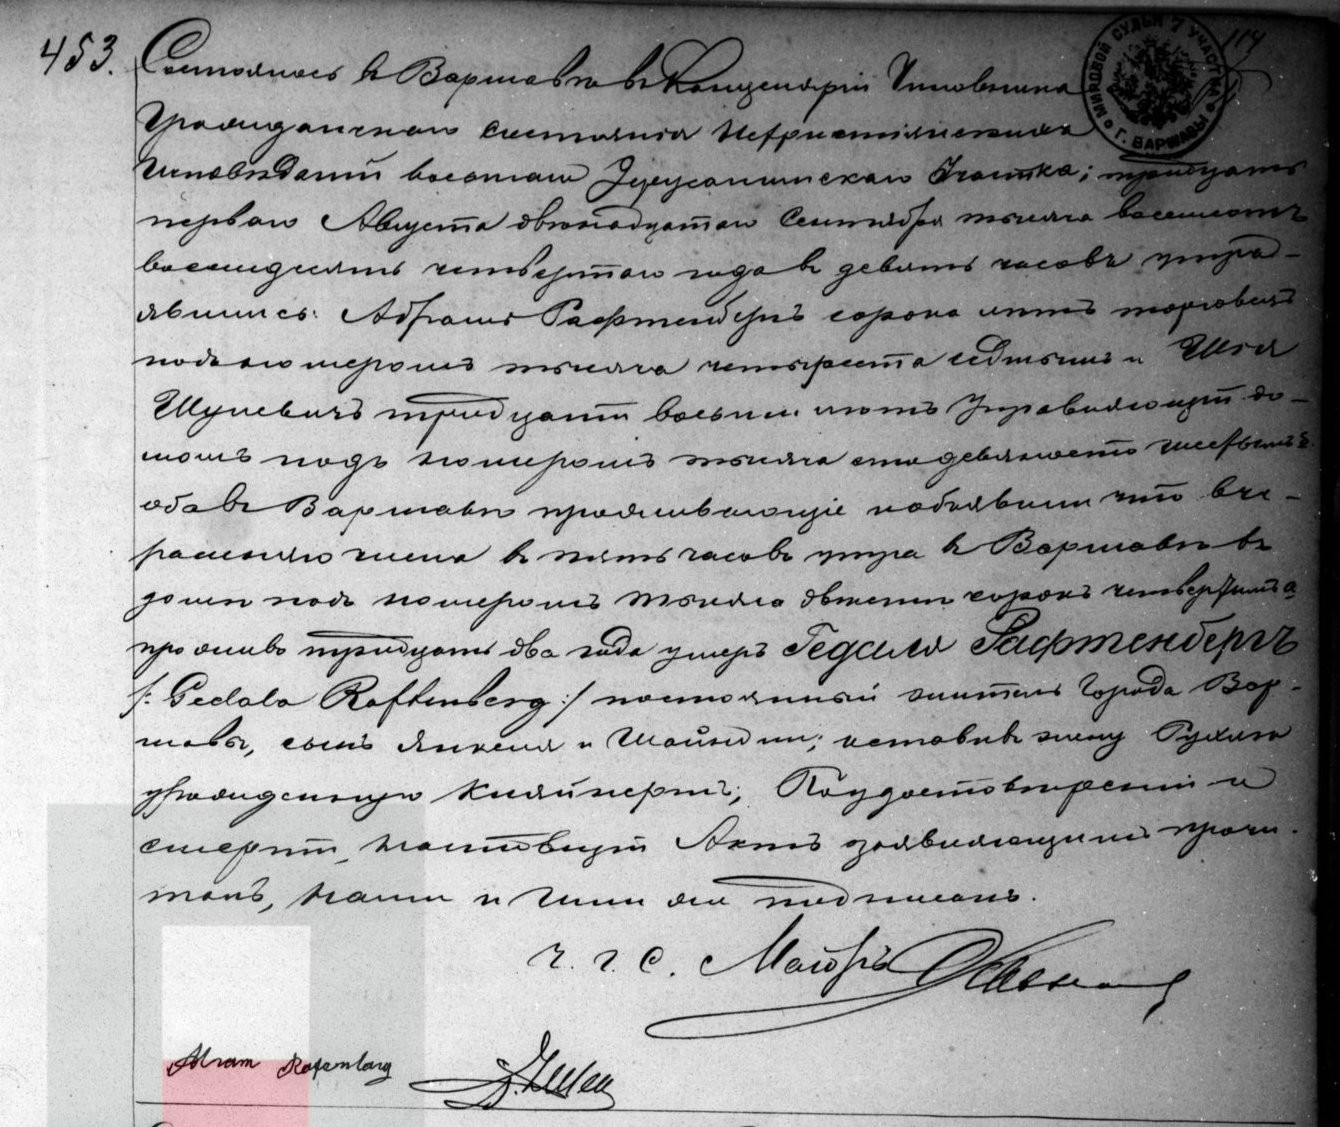 453.
Состоялось въ Варшавѣ въ Канцеляріи Чиновника
Гражданскаго состоянія Нехристіанскихъ
Исповѣданій восьмаго Іерусалимскаго Участка; тридцать
перваго Августа двѣнадцатаго Сентября тысяча восемьсотъ
восемдесятъ четвертаго года въ девять часовъ утра –
явились: Абрамъ Рафтенбергъ сорока лѣтъ торговецъ
подъ номеромъ тысяча четыреста седьмымъ и
Шулевичъ тридцати восьми лѣтъ Управляющій до–
момъ подъ номеромъ тысяча сто девяносто
оба въ Варшавѣ проживающіе и объявили что вче–
рашняго числа въ пять часовъ утра въ Варшавѣ въ
домѣ подъ номеромъ тысяча двѣсти сорокъ четвертымъ а
проживъ тридцать два года умеръ Гедаля Рафтенбергъ
/: Gedala Raftenberg :/ постоянный житель Города Вар–
шавы, сынъ Янкеля и Шайндли; оставивъ жену Рухлю
урожденную Кляйнертъ; По удостовѣреніи о
смерти, настоящій Актъ заявляющимъ прочи–
танъ, Нами и Ими же подписанъ.
Ч. Г. С. Маіоръ
Abram Rafenberg
МИРОВОЙ СУДЬИ 7 УЧАСТКА Г. ВАРШАВЫ